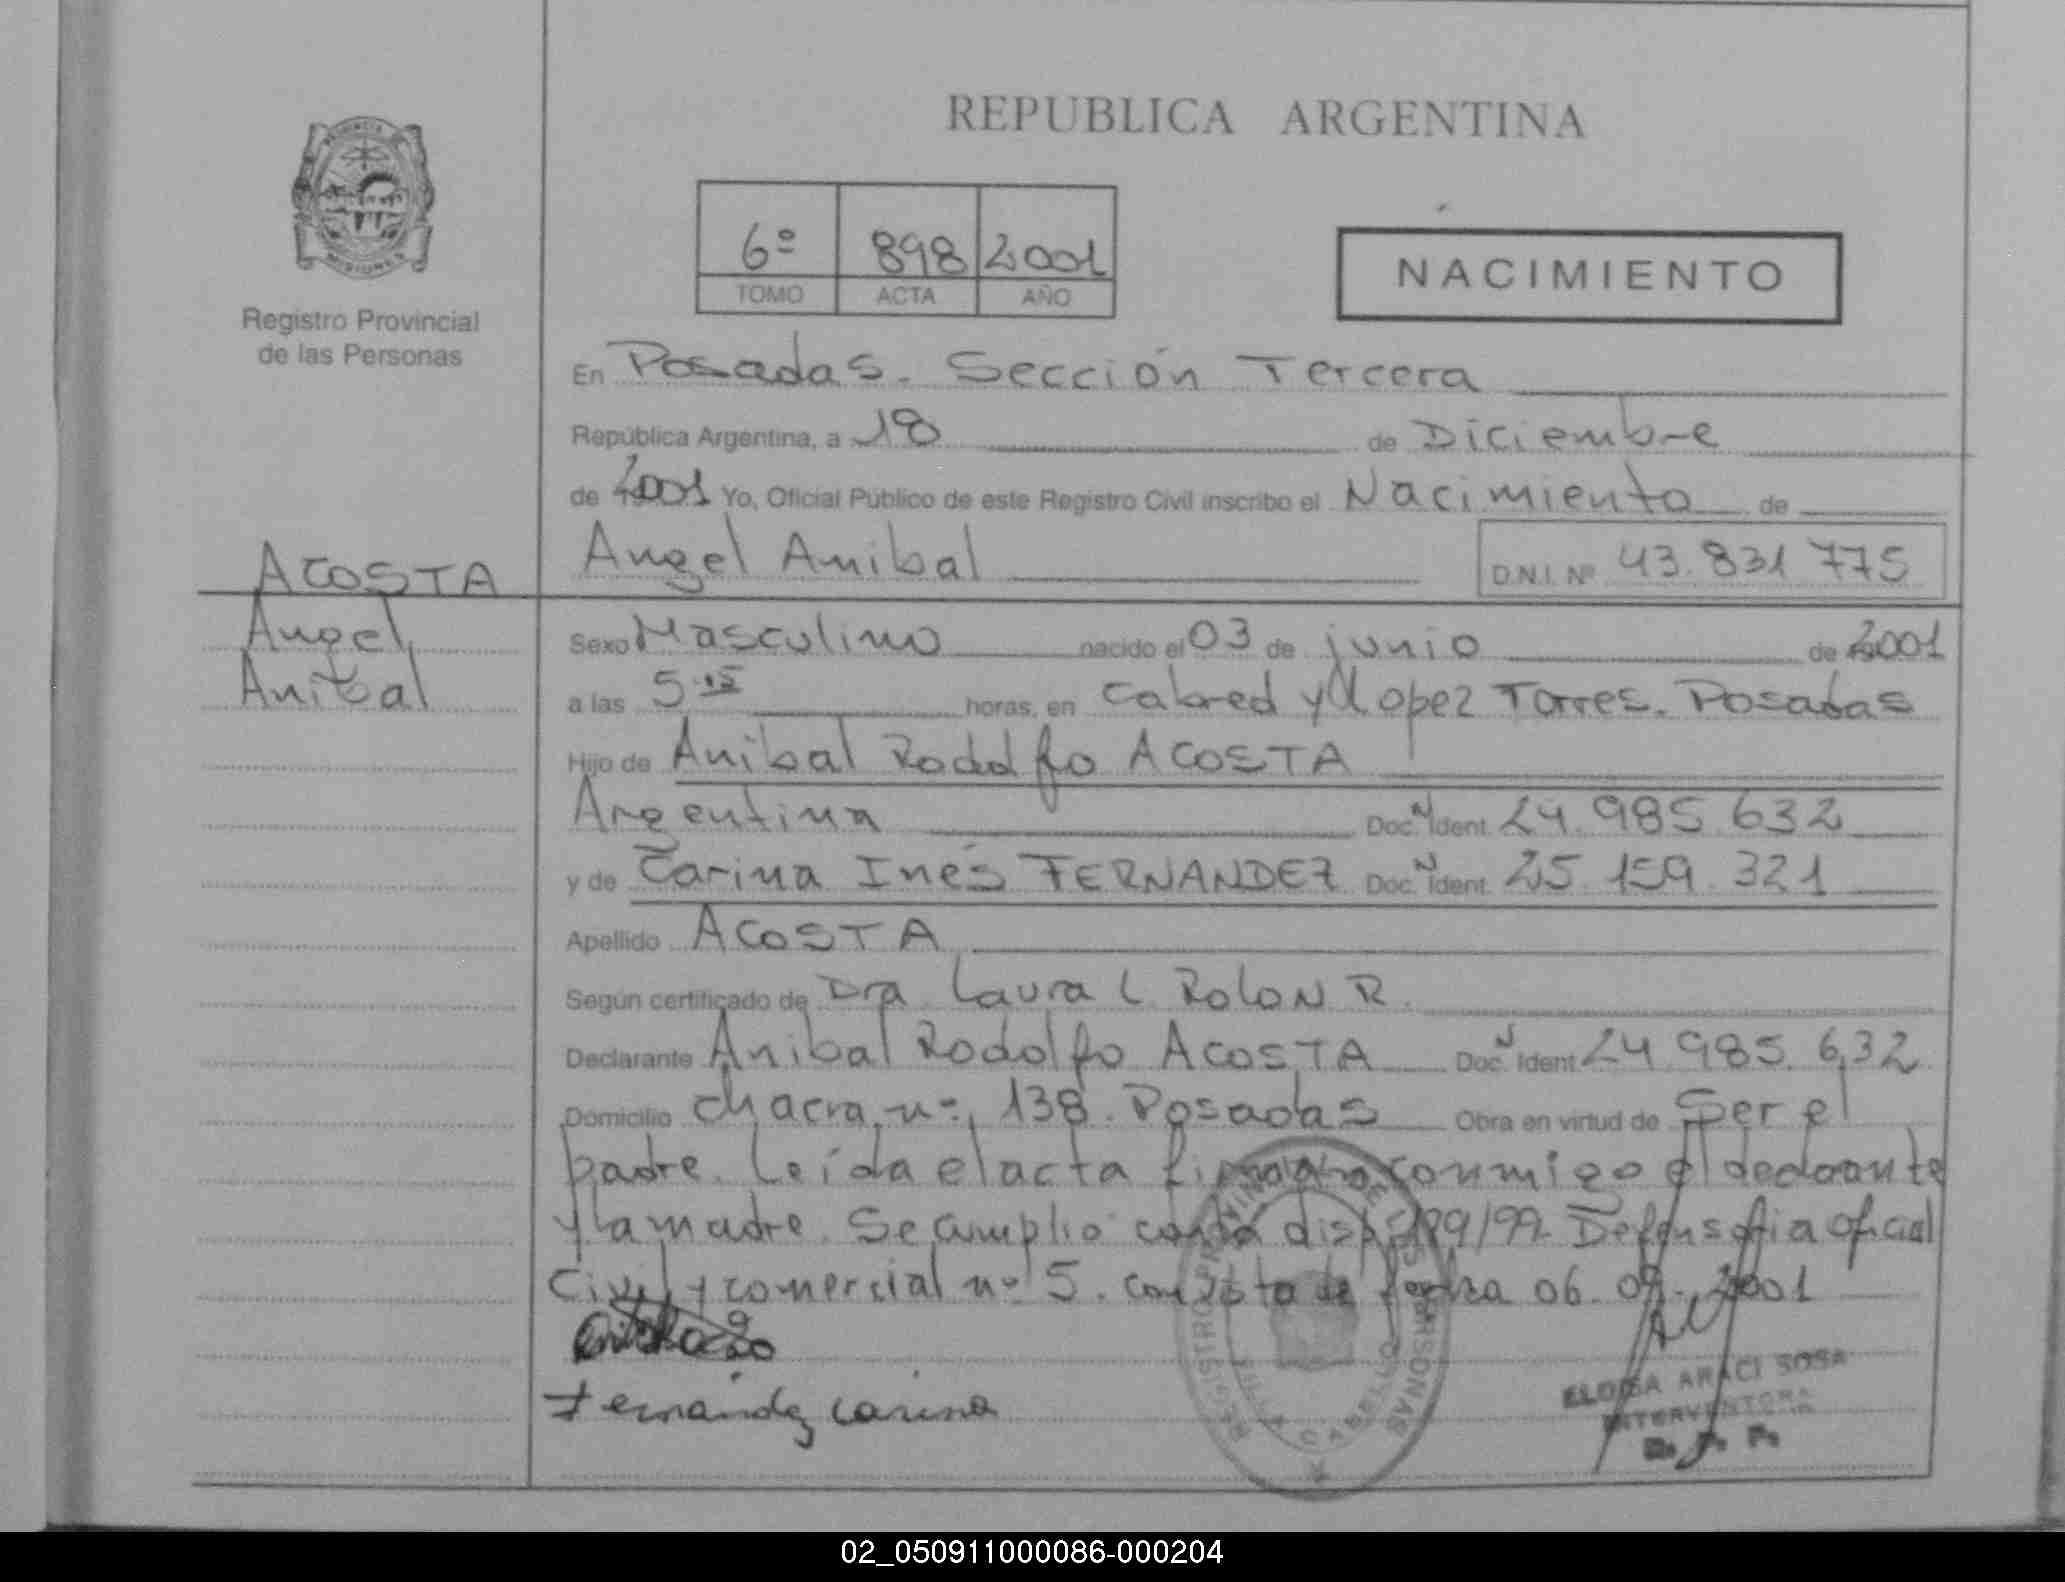 REPUBLICA ARGENTINA
PROVINCIA
MISIONES
Registro Provincial
de las Personas
6º 898 2001
TOMO ACTA AÑO
NACIMIENTO
En Posadas. Sección Tercera
República Argentina, a 18 de Diciembre
de 2001 Yo, Oficial Público de este Registro Civil inscribo el Nacimiento de
ACOSTA Angel Anibal D.N.I. Nº 43.831 775
Angel
Anibal
Sexo Masculino nacido el 03 de junio de 2001
a las 5.15 horas, en Cabred y López Torres. Posadas
Hijo de Anibal Rodolfo ACOSTA
Argentina Doc. N Ident. 24.985.632
y de Carina Inés FERNANDEZ Doc. N Ident. 25.159.321
Apellido ACOSTA
Según certificado de Dra Laura L Rolon R.
Declarante Anibal Rodolfo ACOSTA Doc. N Ident. 24 985.632
Domicilio chacra nº 138. Posadas Obra en virtud de Ser el
padre. Leída el acta firman conmigo el declarante
y la madre. Se cumplió con la disp. 199/99. Defensoria oficial
Civil y comercial nº 5. con vista de fecha 06.09.2001
Fernandez Carina
REGISTRO PROVINCIAL DE LAS PERSONAS
VILLA CABELLO
ELOISA ARACI SOSA
INTERVENTORA
R. P. P.
02_050911000086-000204